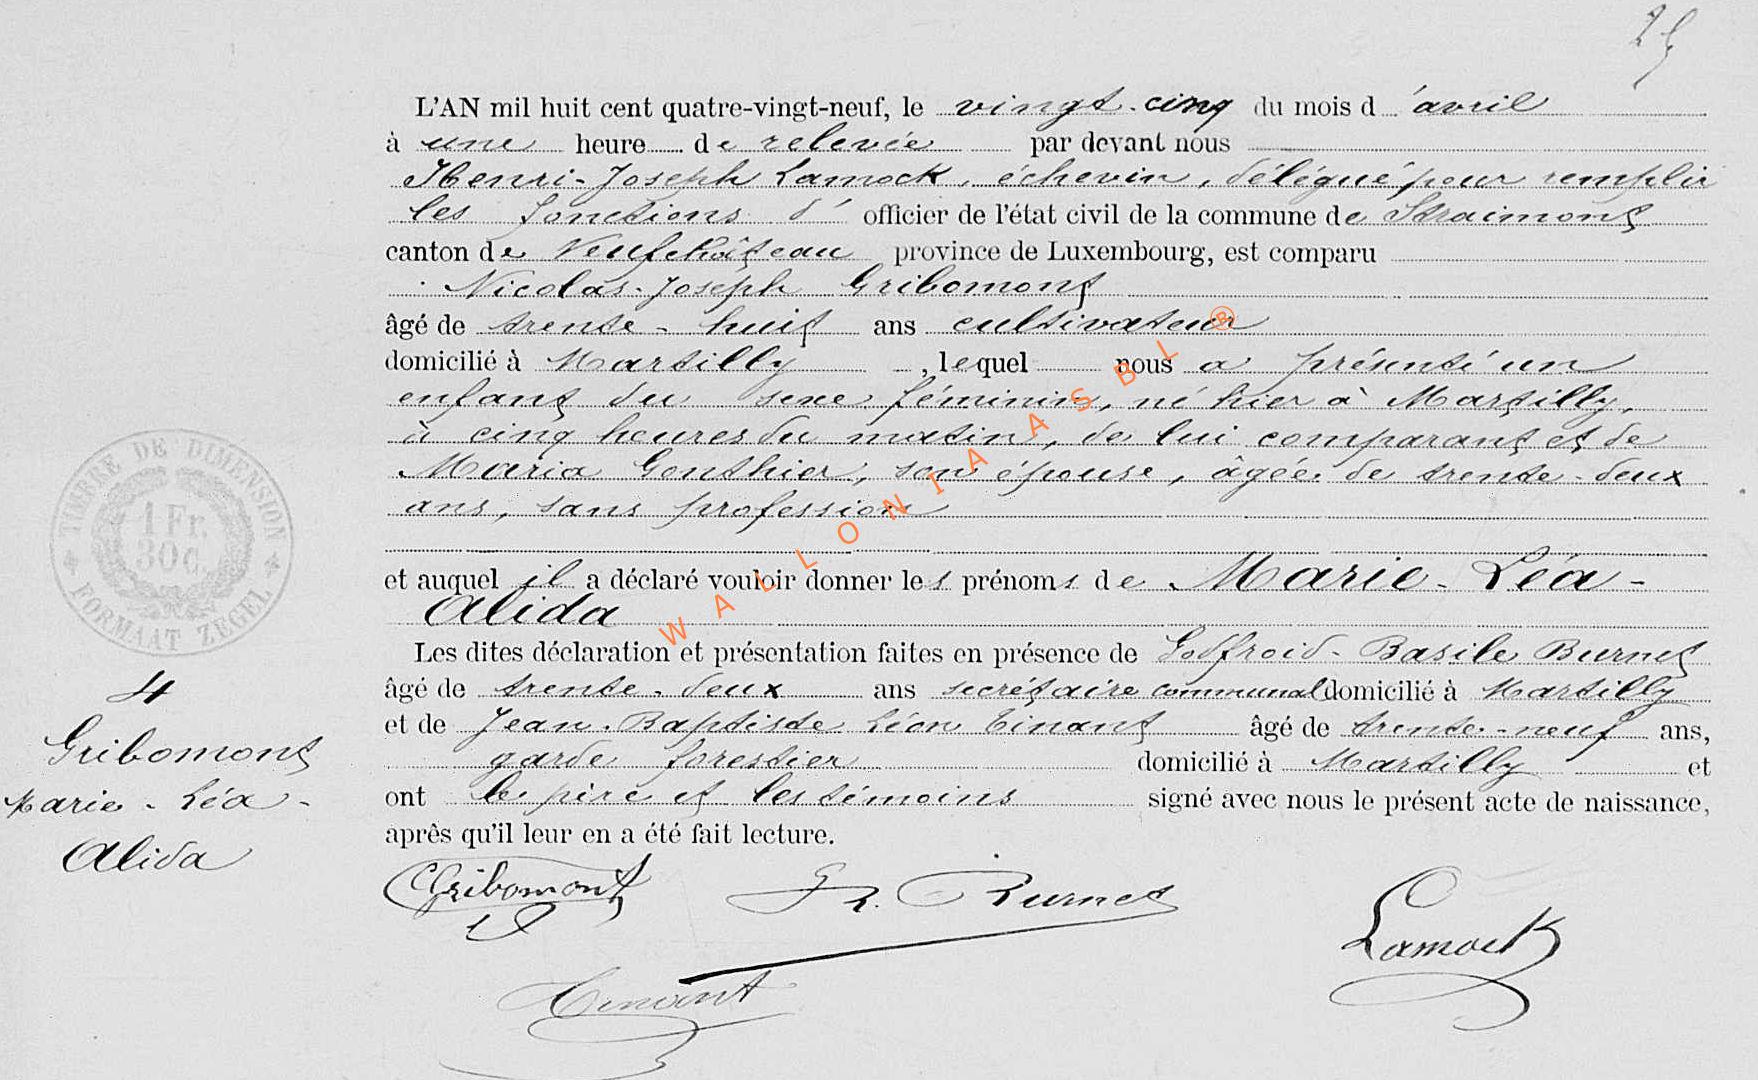 25
L'AN mil huit cent quatre-vingt-neuf, le vingt-cinq du mois d'avril
à une heure de relevée par devant nous
Henri-Joseph Lamock, échevin, délégué pour remplir
les fonctions d'officier de l'état civil de la commune de Straimont
canton de Neufchâteau province de Luxembourg, est comparu
Nicolas-Joseph Gribomont
âgé de trente-huit ans cultivateur
domicilié à Martilly, lequel nous a présenté un
enfant du sexe féminin, né hier à Martilly,
à cinq heures du matin, de lui comparant et de
Maria Gonthier, son épouse, âgée de trente-deux
ans, sans profession
et auquel il a déclaré vouloir donner les prénoms de Marie-Léa-
Alida
Les dites déclaration et présentation faites en présence de Godfroid-Basile Burnet
âgé de trente-deux ans secrétaire communal domicilié à Martilly
et de Jean-Baptiste Léon Tinant âgé de trente-neuf ans,
garde forestier domicilié à Martilly et
ont le père et les témoins signé avec nous le présent acte de naissance,
après qu'il leur en a été fait lecture.
TIMBRE DE DIMENSION
1 Fr.
30 C.
FORMAAT ZEGEL
4
Gribomont
Marie-Léa-
Alida
Gribomont
Burnet
Lamock
Tinant
WALLONIA ASBL ®